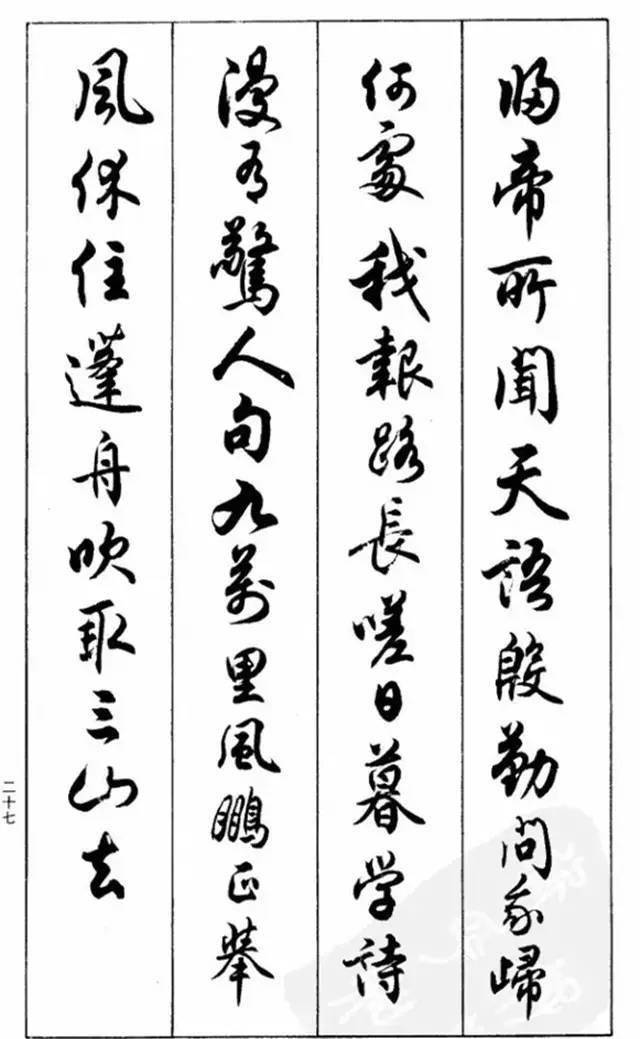 歸帝所聞天語殷勤問我歸
何處我報路長嗟日暮学詩
漫有驚人句九萬里風鵬正舉
風休住蓬舟吹取三山去
二十七